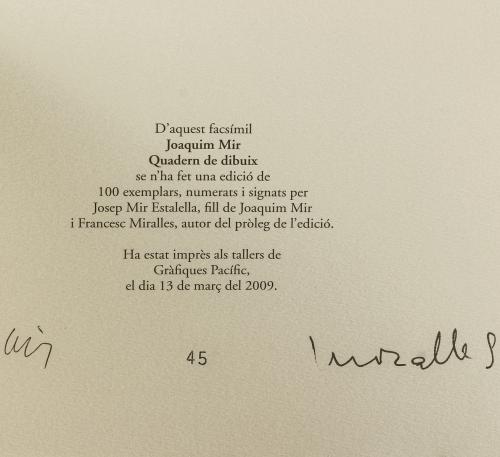 D'aquest facsímil
Joaquim Mir
Quadern de dibuix
se n'ha fet una edició de
100 exemplars, numerats i signats per
Josep Mir Estalella, fill de Joaquim Mir
i Francesc Miralles, autor del pròleg de l'edició.
Ha estat imprès als tallers de
Gràfiques Pacífic,
el dia 13 de març del 2009.
45